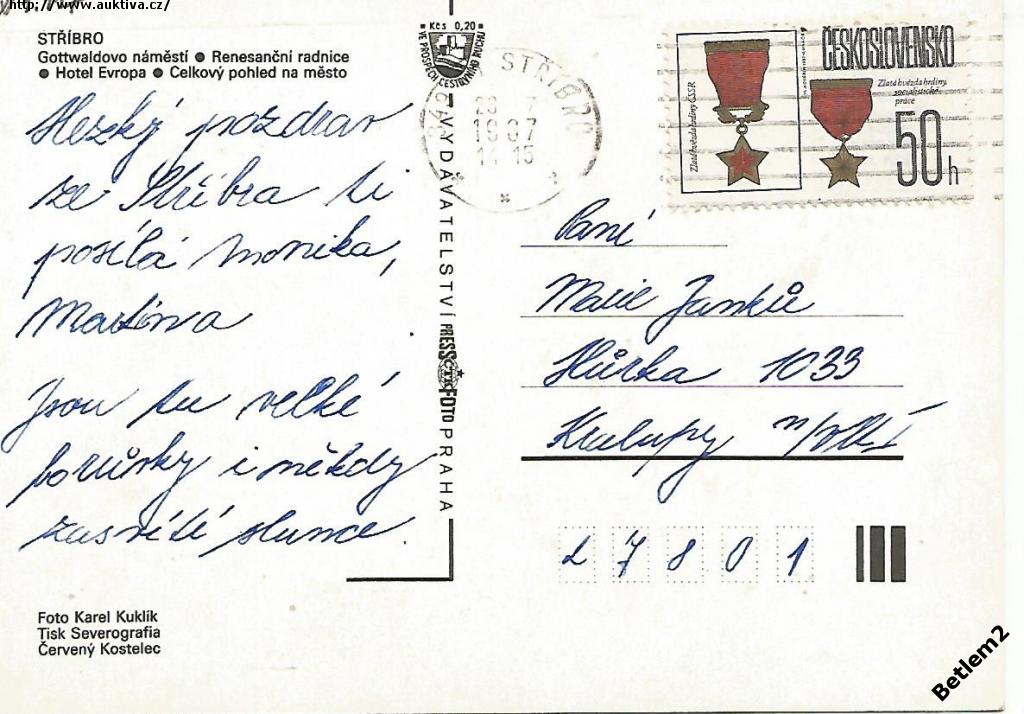 http://www.auktiva.cz/
STŘÍBRO
Gottwaldovo náměstí ● Renesanční radnice
● Hotel Evropa ● Celkový pohled na město
Hezký pozdrav
ze Stříbra ti
posílá Monika,
Martina
Jsou tu velké
borůvky i někdy
zasvítí slunce.
Foto Karel Kuklík
Tisk Severografia
Červený Kostelec
Kčs 0,20
VE PROSPĚCH CESTOVNÍHO RUCHU
VYDAVATELSTVÍ PRESSFOTO PRAHA
ČTK
STŘÍBRO
ČESKOSLOVENSKO
Zlatá hvězda hrdiny ČSSR
Zlatá hvězda hrdiny
socialistické
práce
50h
Paní
Marie Janků
Hůrka 1033
Kralupy n/Vlt
27801
Betlem2